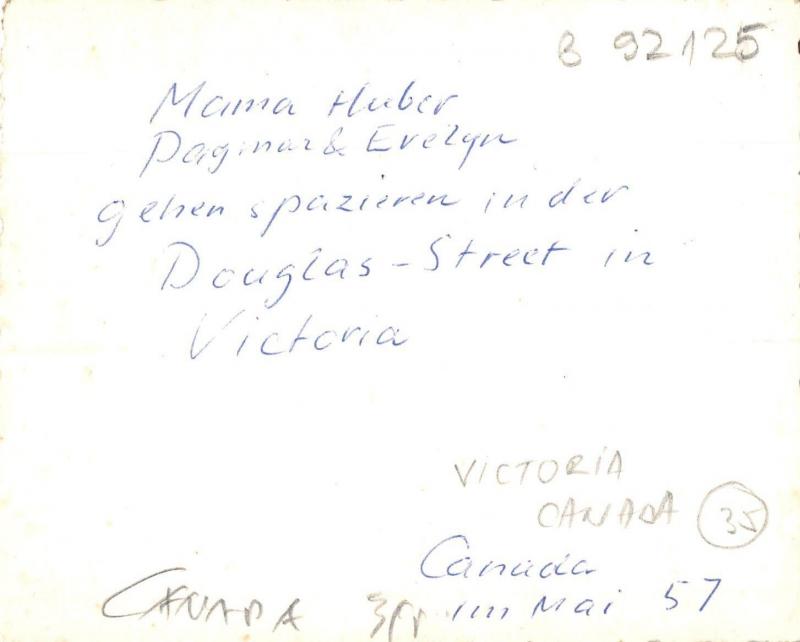 B 92125
Mama Huber
Dagmar & Evelyn
gehen spazieren in der
Douglas-Street in
Victoria
VICTORIA
CANADA 35
Canada
im Mai 57
CANADA